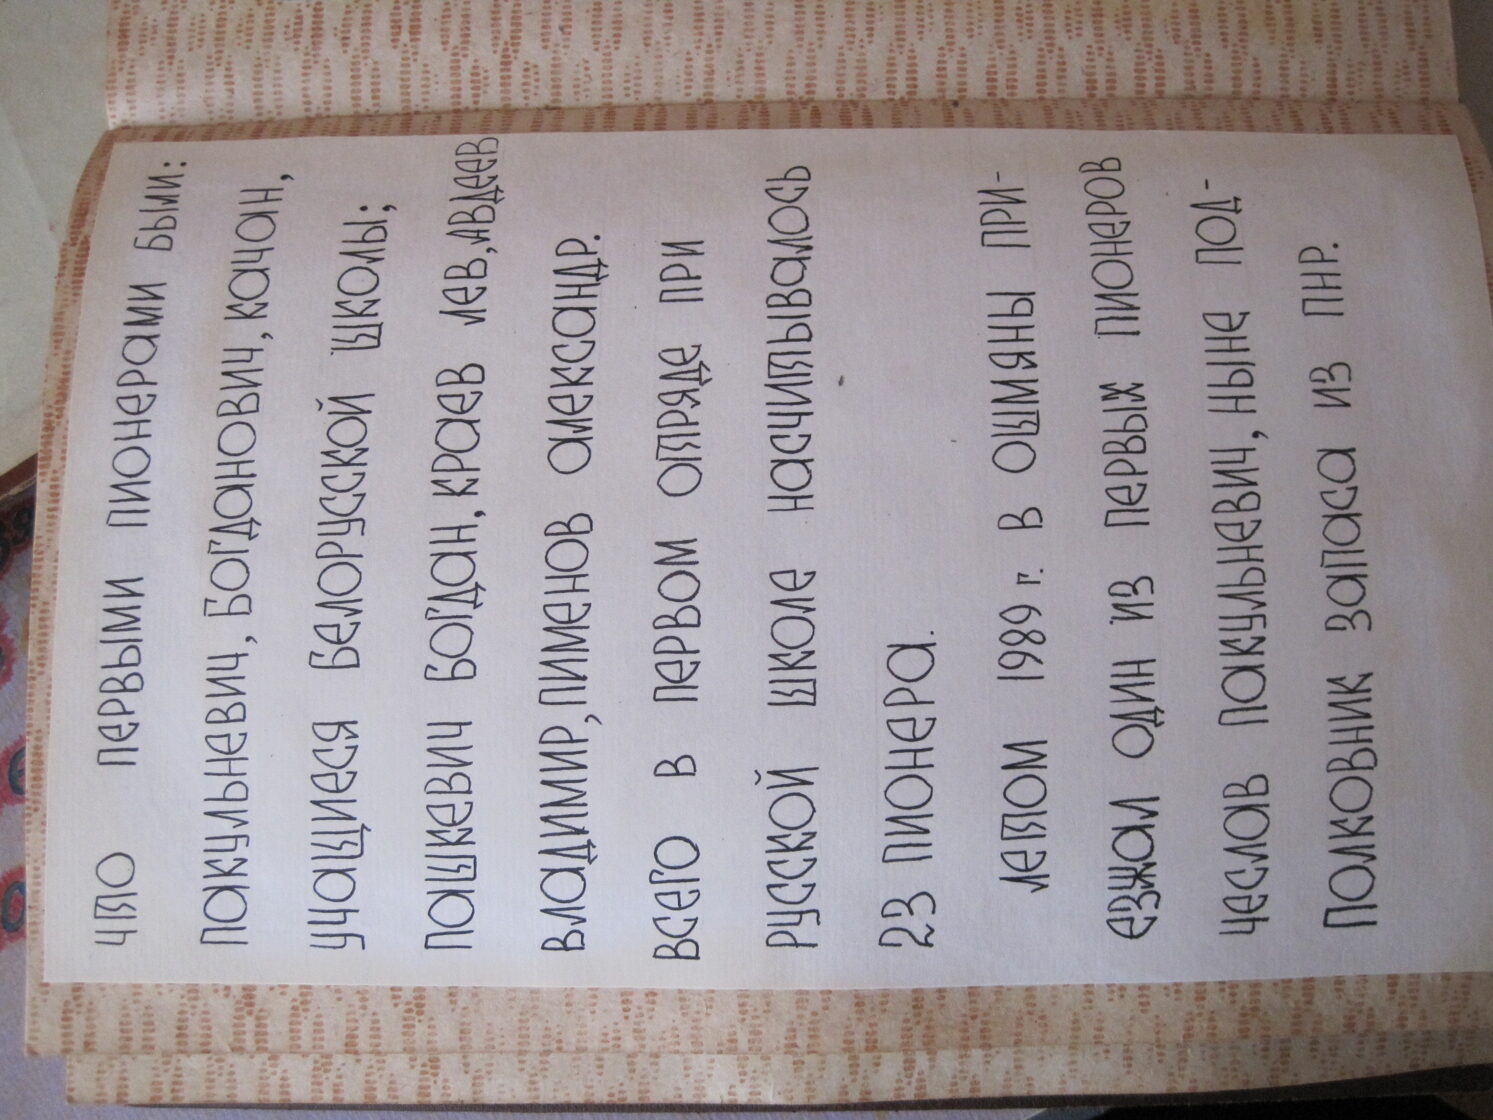 что первыми пионерами были:
Покульневич, Богданович, Качан,
учащиеся Белорусской школы;
Пашкевич Богдан, Краев Лев, Авдеев
Владимир, Пименов Александр.
Всего в первом отряде при
русской школе насчитывалось
23 пионера.
Летом 1989 г. в Ошмяны при-
езжал один из первых пионеров
Чеслов Покульневич, ныне под-
полковник запаса из ПНР.